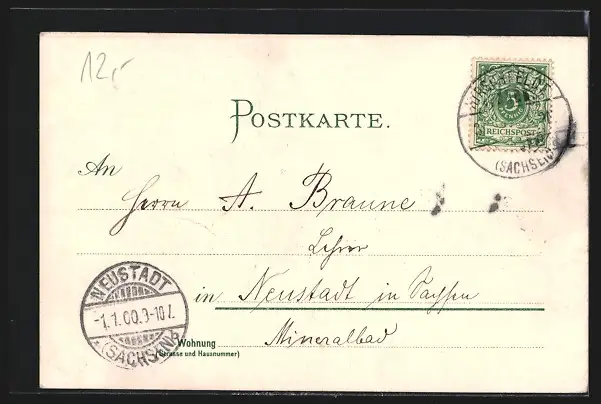 12,-
REICHSPOST
(SACHSEN)
POSTKARTE.
An
Herrn A. Braune
Lehrer
in Neustadt in Sachsen
Mineralbad
NEUSTADT
-1.1.00.9-10V.
(SACHSEN)
Wohnung
(Strasse und Hausnummer)